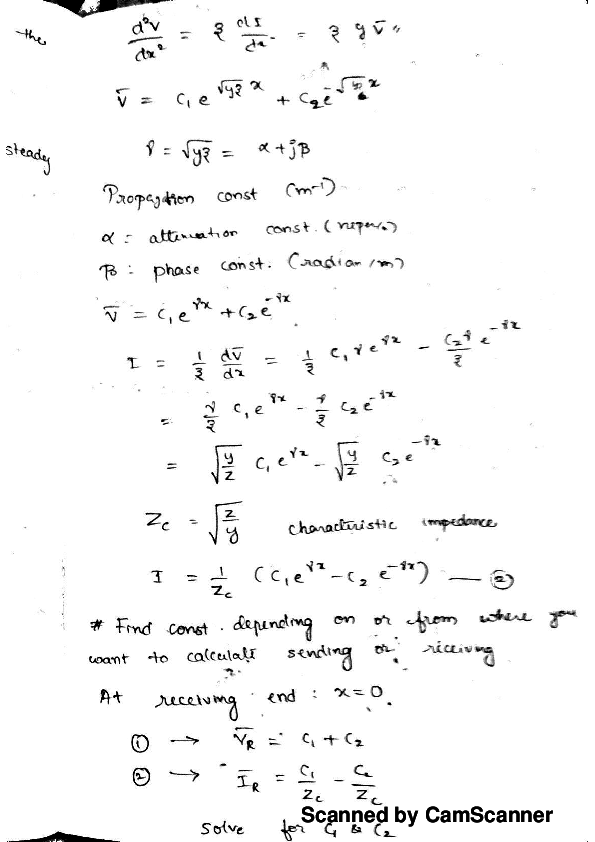 the
d²V/dx² = z dI/dx = z y V̄ "
V̄ = C₁ e^(√yz x) + C₂ e^(-√yz x)
steady
γ = √yz = α + jβ
Propagation const (m⁻¹)
α = attenuation const. (neper/m)
β : phase const. (radian/m)
V̄ = C₁ e^(γx) + C₂ e^(-γx)
I = 1/z dV̄/dx = 1/z C₁ γ e^(γx) - C₂γ/z e^(-γx)
= γ/z C₁ e^(γx) - γ/z C₂ e^(-γx)
= √(y/z) C₁ e^(γx) - √(y/z) C₂ e^(-γx)
Zc = √(z/y) characteristic impedance
I = 1/Zc (C₁ e^(γx) - C₂ e^(-γx)) — ②
# Find const. depending on or from where you
want to calculate sending or riceiving
At receiving end : x = 0.
① → V̄R = C₁ + C₂
② → ĪR = C₁/Zc - C₂/Zc
Solve for C₁ & C₂
Scanned by CamScanner